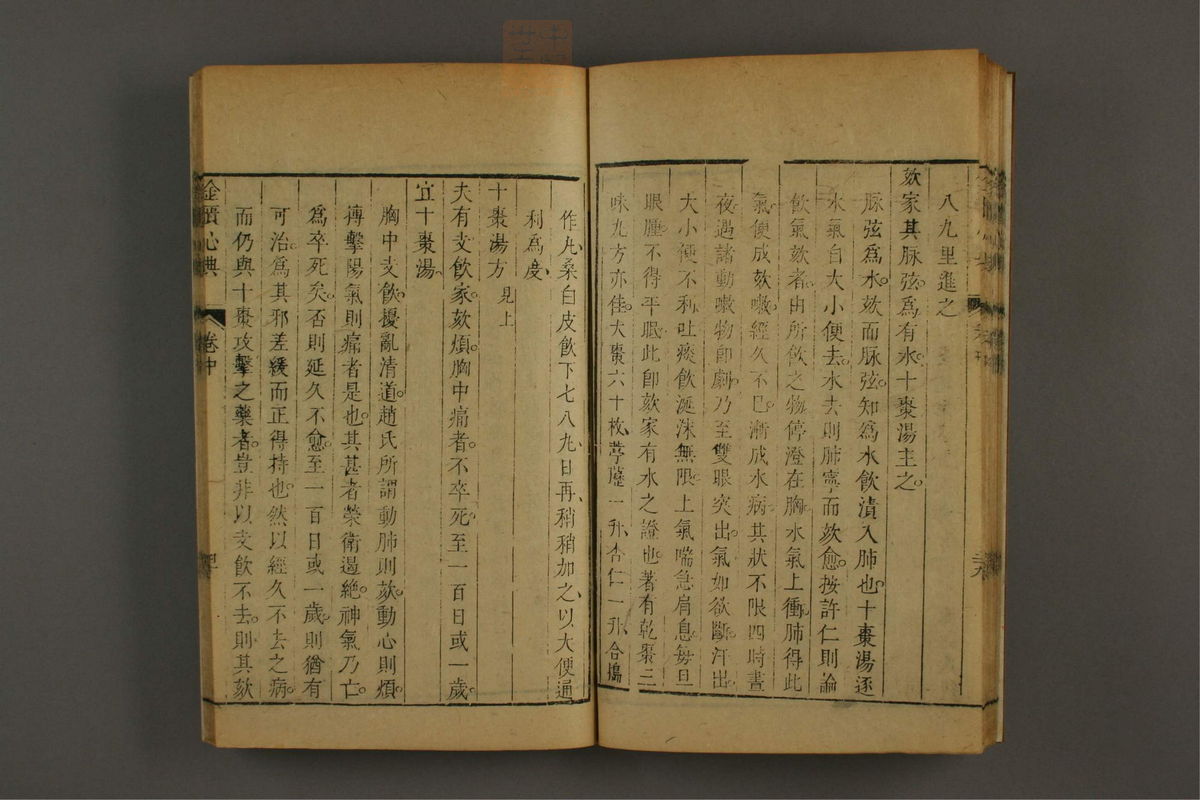 八九里進之
欬家其脉弦爲有水十棗湯主之
脉弦爲水欬而脉弦知爲水飲漬入肺也十棗湯逐
水氣自大小便去水去則肺寧而欬愈按許仁則論
飲氣欬者由所飲之物停澄在胸水氣上衝肺得此
氣便成欬嗽經久不已漸成水病其狀不限四時晝
夜遇諸動嗽物卽劇乃至雙眼突出氣如欲斷汗出
大小便不利吐痰飲涎沫無限上氣喘急肩息每旦
眼腫不得平眠此卽欬家有水之證也著有乾棗三
味丸方亦佳大棗六十枚葶藶一升杏仁一升合搗
作丸桑白皮飲下七八丸日再稍稍加之以大便通
利爲度
十棗湯方 見上
夫有支飲家欬煩胸中痛者不卒死至一百日或一歲
宜十棗湯
胸中支飲擾亂清道趙氏所謂動肺則欬動心則煩
搏擊陽氣則痛者是也其甚者榮衛遏絕神氣乃亡
爲卒死矣否則延久不愈至一百日或一歲則猶有
可治爲其邪差緩而正得持也然以經久不去之病
而仍與十棗攻擊之藥者豈非以支飲不去則其欬
金匱心典 卷中